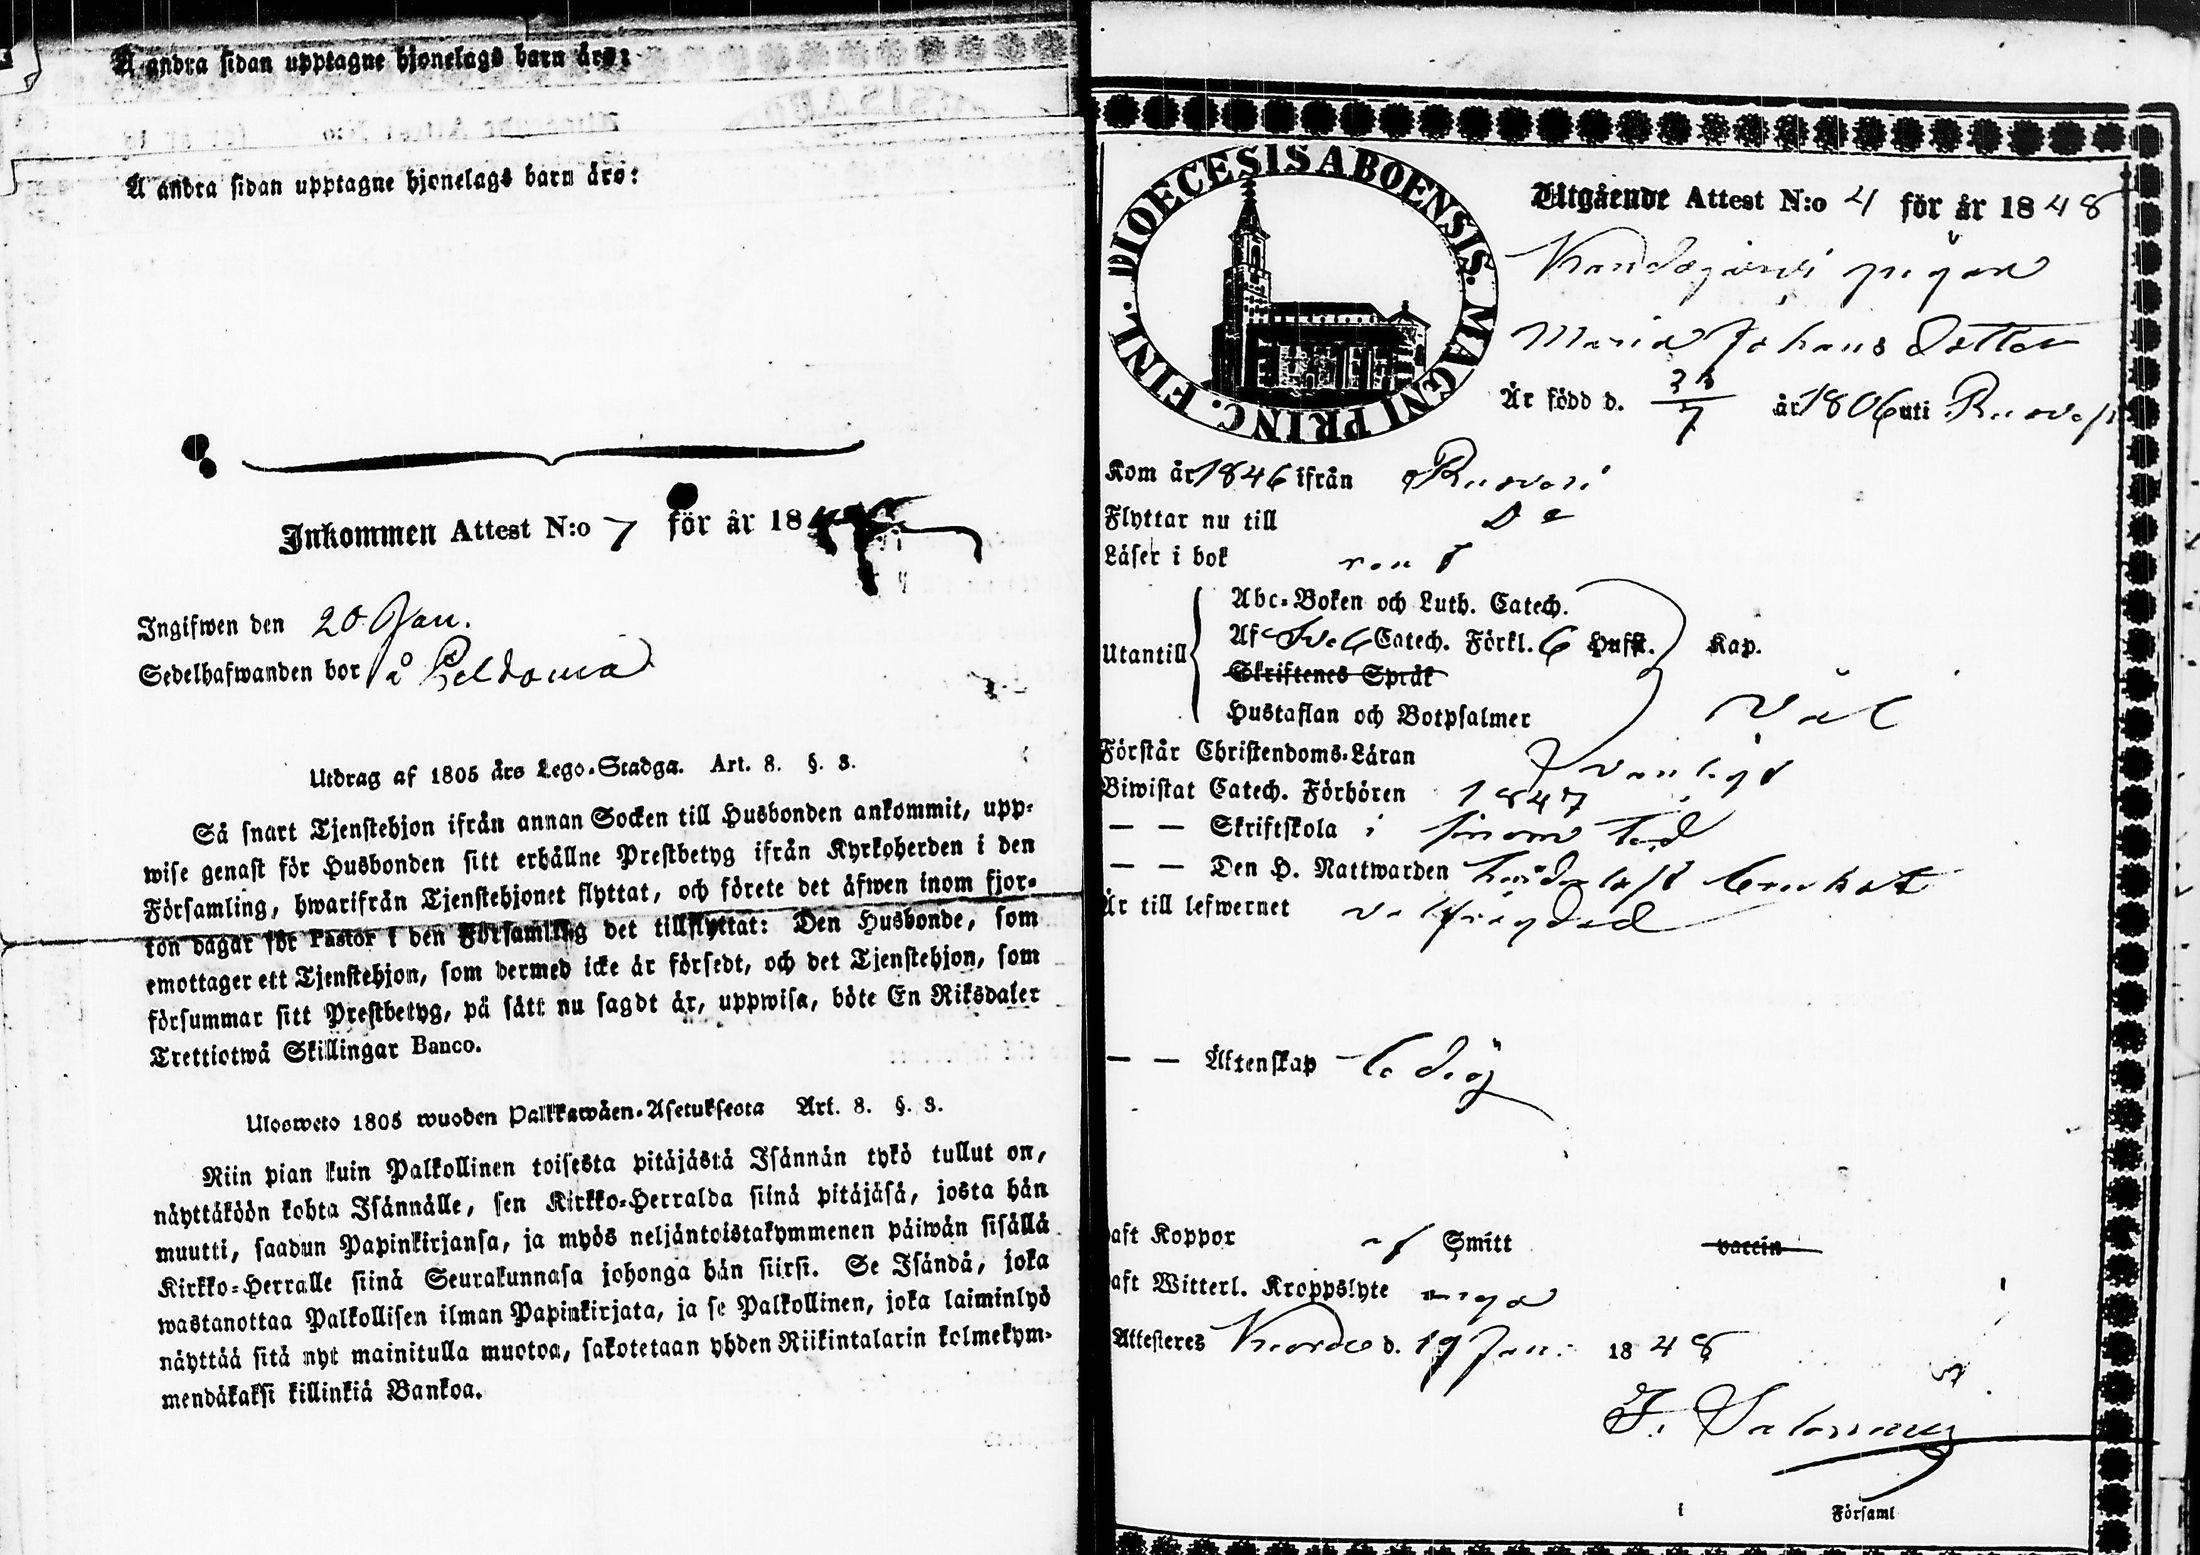 Å andra sidan upptagne hjonelags barn äro:
Å andra sidan upptagne hjonelags barn äro:
Inkommen Attest N:o 7 för år 18
Ingifwen den 20 Jan.
Sedelhafwanden bor å
Utdrag af 1805 års Lego-Stadga. Art. 8. §. 3.
Så snart Tjenstehjon ifrån annan Socken till Husbonden ankommit, upp-
wise genast för Husbonden sitt erhållne Prestbetyg ifrån Kyrkoherden i den
Församling, hwarifrån Tjenstehjonet flyttat, och förete det äfwen inom fjor-
ton dagar för Pastor i den Församling det tillflyttat: Den Husbonde, som
emottager ett Tjenstehjon, som dermed icke är försedt, och det Tjenstehjon, som
försummar sitt Prestbetyg, på sätt nu sagdt är, uppwisa, böte En Riksdaler
Trettiotwå Skillingar Banco.
Ulosweto 1805 wuoden Palkkawäen-Asetuksesta Art. 8. §. 3.
Niin pian kuin Palkollinen toisesta pitäjästä Isännän tykö tullut on,
näyttäköön kohta Isännälle, sen Kirkko-Herralda siinä pitäjäsä, josta hän
muutti, saadun Papinkirjansa, ja myös neljäntoistakymmenen päiwän sisällä
Kirkko-Herralle siinä Seurakunnasa johonga hän siirsi. Se Isändä, joka
wastanottaa Palkollisen ilman Papinkirjata, ja se Palkollinen, joka laiminlyö
näyttää sitä nyt mainitulla muotoa, sakotetaan yhden Riikintalarin kolmekym-
mendäkaksi killinkiä Bankoa.
DIOECESIS ABOENSIS. MAGNI PRINC. FINL.
Utgående Attest N:o 4 för år 1848
pigan
Maria Johans Dotter
Är född d. 7 år 1806 uti Ruovesi
Kom år 1846 ifrån Ruovesi
Flyttar nu till Do
Läser i bok rent
Utantill
Abc-Boken och Luth. Catech.
Af Sveb Catech. Förkl. 6 Hufst. Kap.
Skriftenes Språk
Hustaflan och Botpsalmer Väl
Förstår Christendoms-Läran
Biwistat Catech. Förhören 1847
— — Skriftskola i sinom tid
— — Den H. Nattwarden brukat
Är till lefwernet välfrägdad
— — Äktenskap ledig
aft Koppor af Smitt vaccin
aft Witterl. Kroppslyte inga
Attesteres d. 19 Jan. 1848
Församl